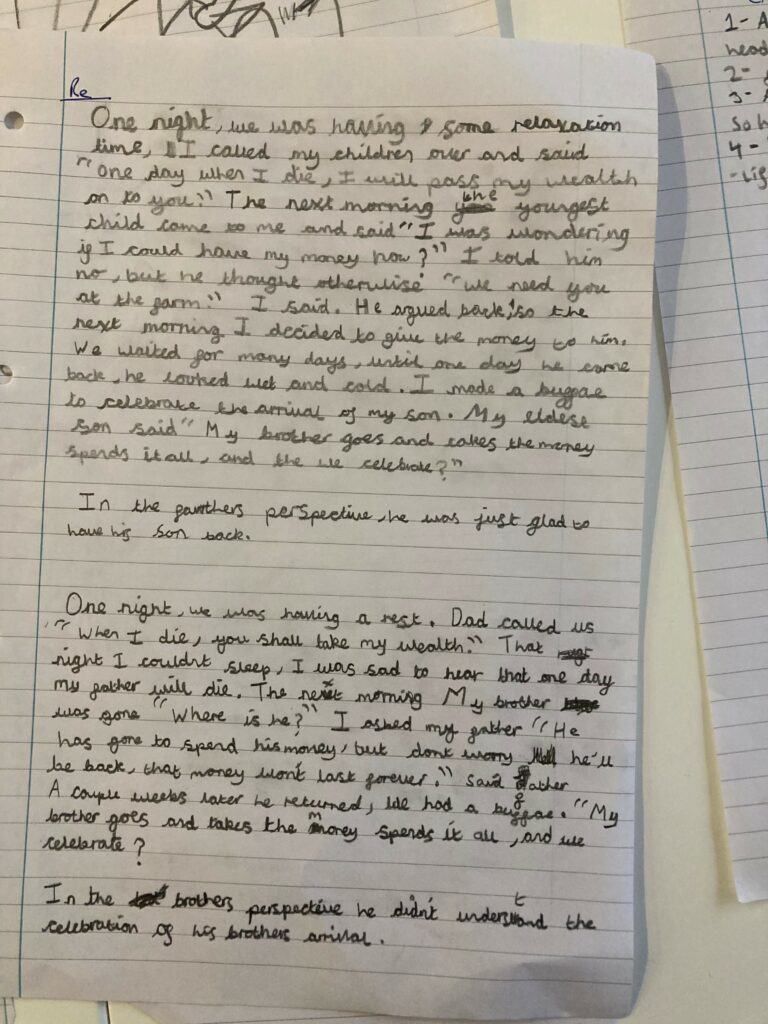 Re
One night, we was having some relaxation
time, I called my children over and said
"One day when I die, I will pass my wealth
on to you." The next morning the youngest
child come to me and said "I was wondering
if I could have my money now?" I told him
no, but he thought otherwise "we need you
at the farm." I said. He argued back, so the
next morning I decided to give the money to him.
We waited for many days, until one day he came
back, he looked wet and cold. I made a buffae
to celebrate the arrival of my son. My eldest
son said "My brother goes and takes the money
spends it all, and the we celebrate?"
In the farthers perspective, he was just glad to
have his son back.
One night, we was having a rest. Dad called us
"When I die, you shall take my wealth." That
night I couldn't sleep, I was sad to hear that one day
my father will die. The next morning My brother
was gone "Where is he?" I asked my father "He
has gone to spend his money, but dont worry he'll
be back, that money won't last forever." Said father
A couple weeks later he returned, We had a buffae. "My
brother goes and takes the money spends it all, and we
celebrate?
In the brothers perspective he didn't understand the
celebration of his brothers arrival.
1- A
head
2-
3- A
so h
4-
-Lig